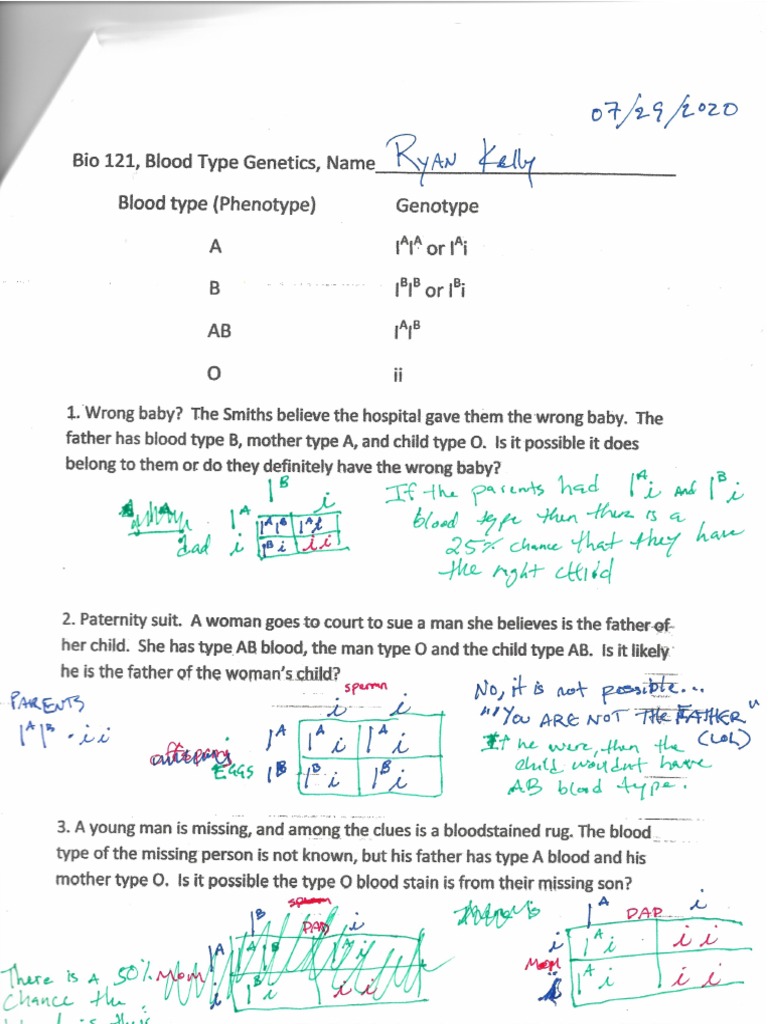 07/29/2020
Bio 121, Blood Type Genetics, Name RYAN Kelly
Blood type (Phenotype) Genotype
A IᴬIᴬ or Iᴬi
B IᴮIᴮ or Iᴮi
AB IᴬIᴮ
O ii
1. Wrong baby? The Smiths believe the hospital gave them the wrong baby. The
father has blood type B, mother type A, and child type O. Is it possible it does
belong to them or do they definitely have the wrong baby?
Iᴮ i
Iᴬ IᴬIᴮ Iᴬi
dad i Iᴮi ii
If the parents had Iᴬi and Iᴮi
blood type then there is a
25% chance that they have
the right child
2. Paternity suit. A woman goes to court to sue a man she believes is the father of
her child. She has type AB blood, the man type O and the child type AB. Is it likely
he is the father of the woman's child?
PARENTS
IᴬIᴮ · ii
sperm
i i
Iᴬ Iᴬi Iᴬi
EGGS Iᴮ Iᴮi Iᴮi
No, it is not possible...
"YOU ARE NOT THE FATHER"
(LOL)
If he were, then the
child wouldnt have
AB blood type.
3. A young man is missing, and among the clues is a bloodstained rug. The blood
type of the missing person is not known, but his father has type A blood and his
mother type O. Is it possible the type O blood stain is from their missing son?
sperm
Iᴮ DAD i
Iᴬ IᴬIᴮ Iᴬi
Mom i Iᴮi ii
Iᴬ DAD i
i Iᴬi ii
Mom
i Iᴬi ii
There is a 50%
chance the